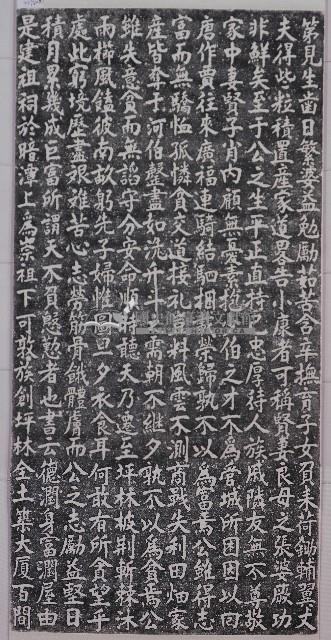 第見生齒日繁婆益勉勵茹苦含辛撫育子女負耒荷鋤輔翼丈
夫得此粒積置產家道畧告小康者可稱賢妻良母之張婆厥功
非鮮矣至于公之生平正直持己忠厚待人族戚隣友無不尊敬
家中妻賢子肖內顧無憂素抱伯之才不爲管城所困因以回
唐作賈往來廣福連騎結駟捆載榮歸孰不以爲富焉公雖得志
富而無驕恤孤憐貧交道接礼豈料風雲不測商戰失利田畑家
產皆奪于河伯罄盡如洗升斗需朝不継夕孰不以爲貧焉公
雖失意貧而無謟守分安命順時聽天乃遷至坪林披荆斬棘沐
雨櫛風饁彼南畝躬先子婦惟圖旦夕衣食耳何敢有所貪望乎
處此窮境歷盡艰难苦心志勞筋骨餓體膚而公之志勵益堅日
積月累幾成巨富所謂天不負懇懃者也書云德潤身富潤屋由
是建祖祠於暗潭上爲崇祖下可敦族創坪林仝土築大厦百間